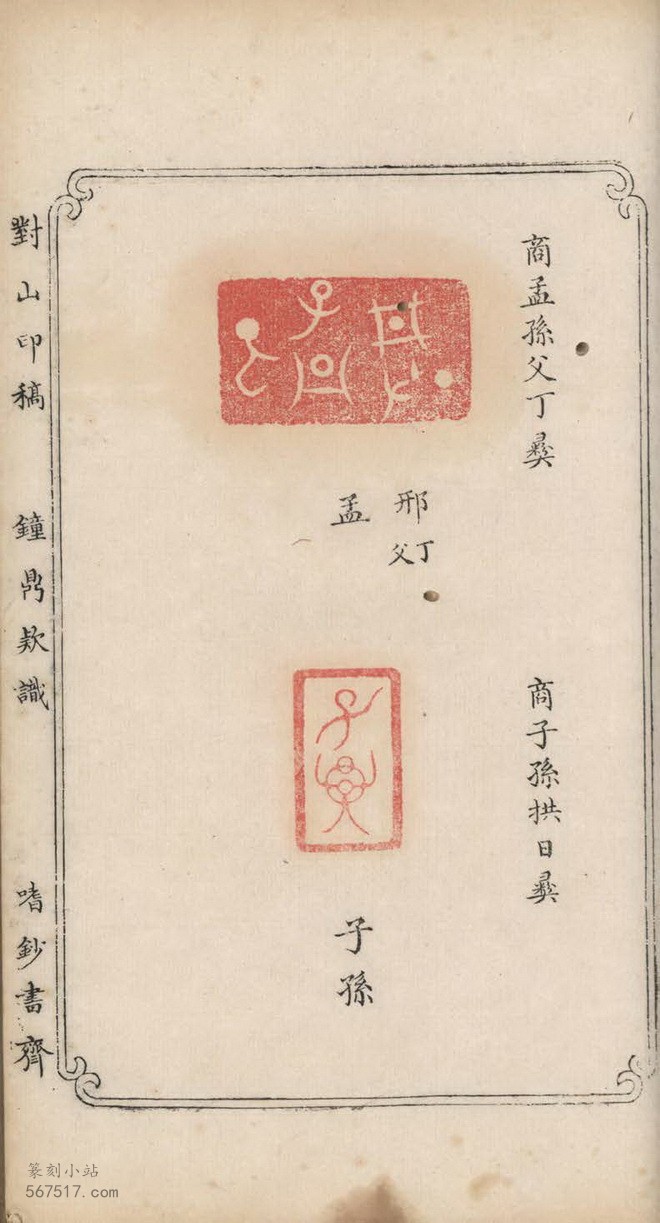 商孟孫父丁彝
邢
丁父
孟
商子孫拱日彝
子孫
對山印稿　鐘鼎欵識　嗜鈔書齋
篆刻小站
567517.com